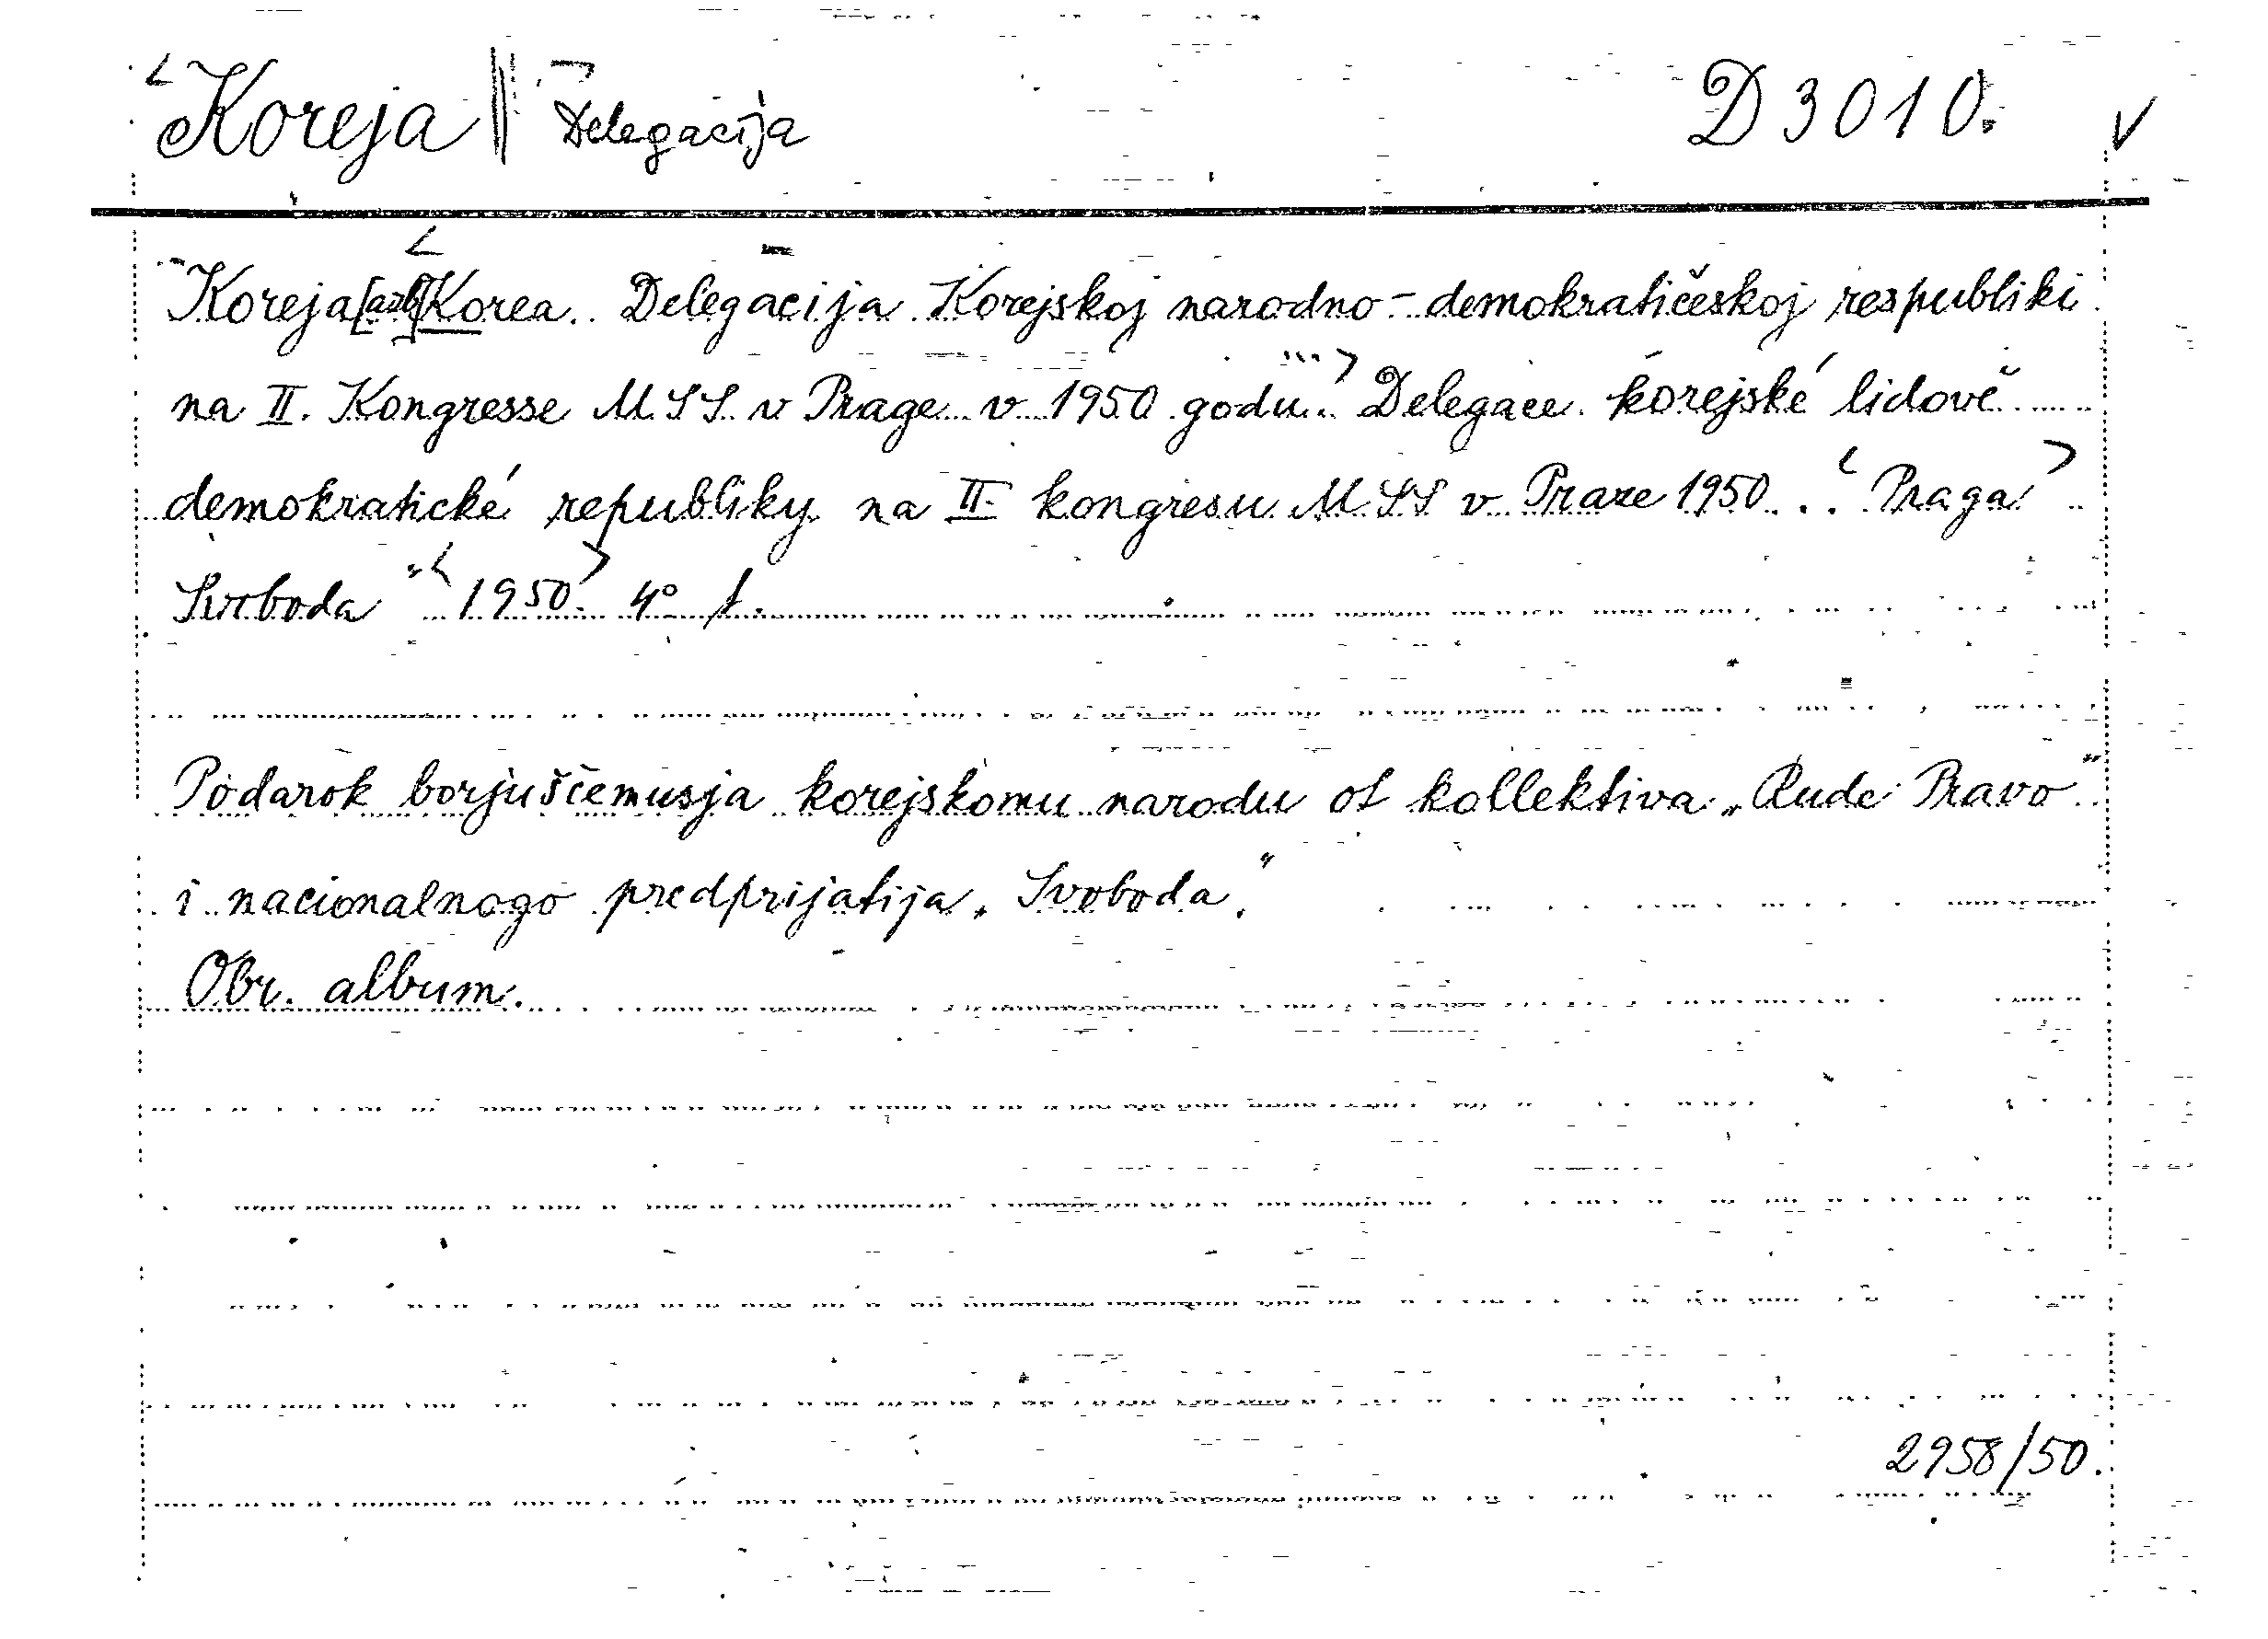 <Koreja || Delegacija> D 3010. V
Koreja [azb] <Korea. Delegacija Korejskoj narodno-demokratičeskoj respubliki
na II. Kongresse MSS v Prage v 1950 godu.> Delegace korejské lidově
demokratické republiky na II. kongresu MSS v Praze 1950. <Praga>
Svoboda <1950>. 4° f.
Podarok borjuščemusja korejskomu narodu ot kollektiva „Rude Pravo"
i nacionalnogo predprijatija „Svoboda."
Obr. album.
2958/50.